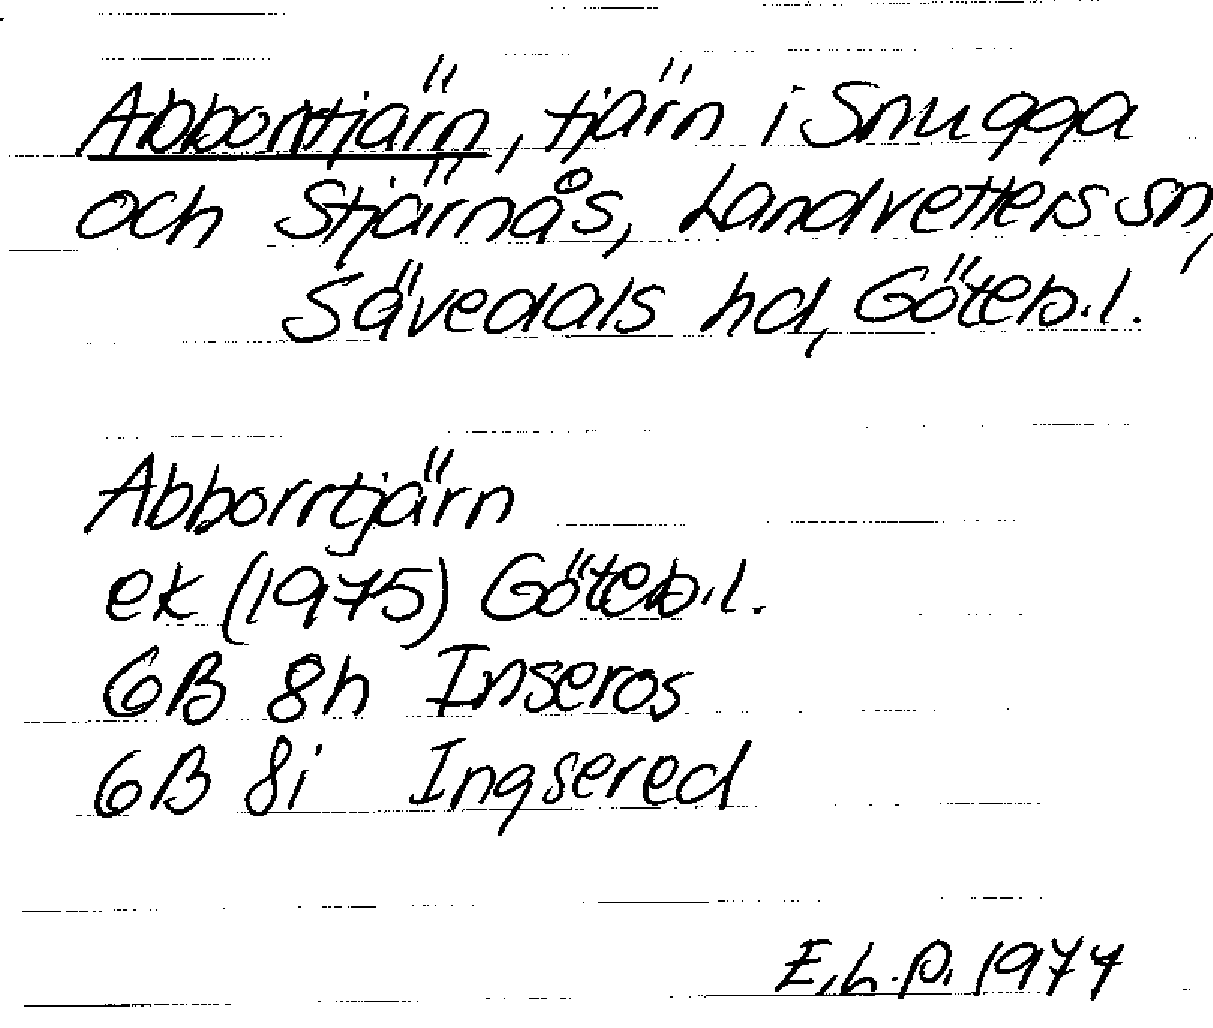 Abborrtjärn, tjärn i Snugga
och Stjärnås, Landvetters sn,
Sävedals hd, Göteb.l.
Abborrtjärn
ek (1975) Göteb.l.
6B 8h Inseros
6B 8i Ingsered
E.L.P. 1977